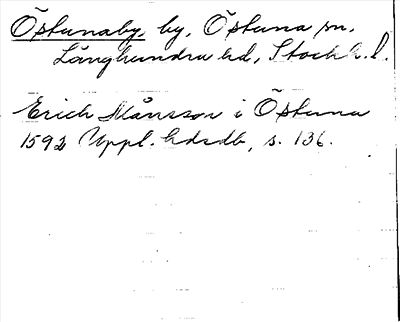 Östunaby, by, Östuna sn,
Långhundra hd, Stockh. l.
Erich Månsson i Östuna
1592 Uppl. hdsdb, s. 136.